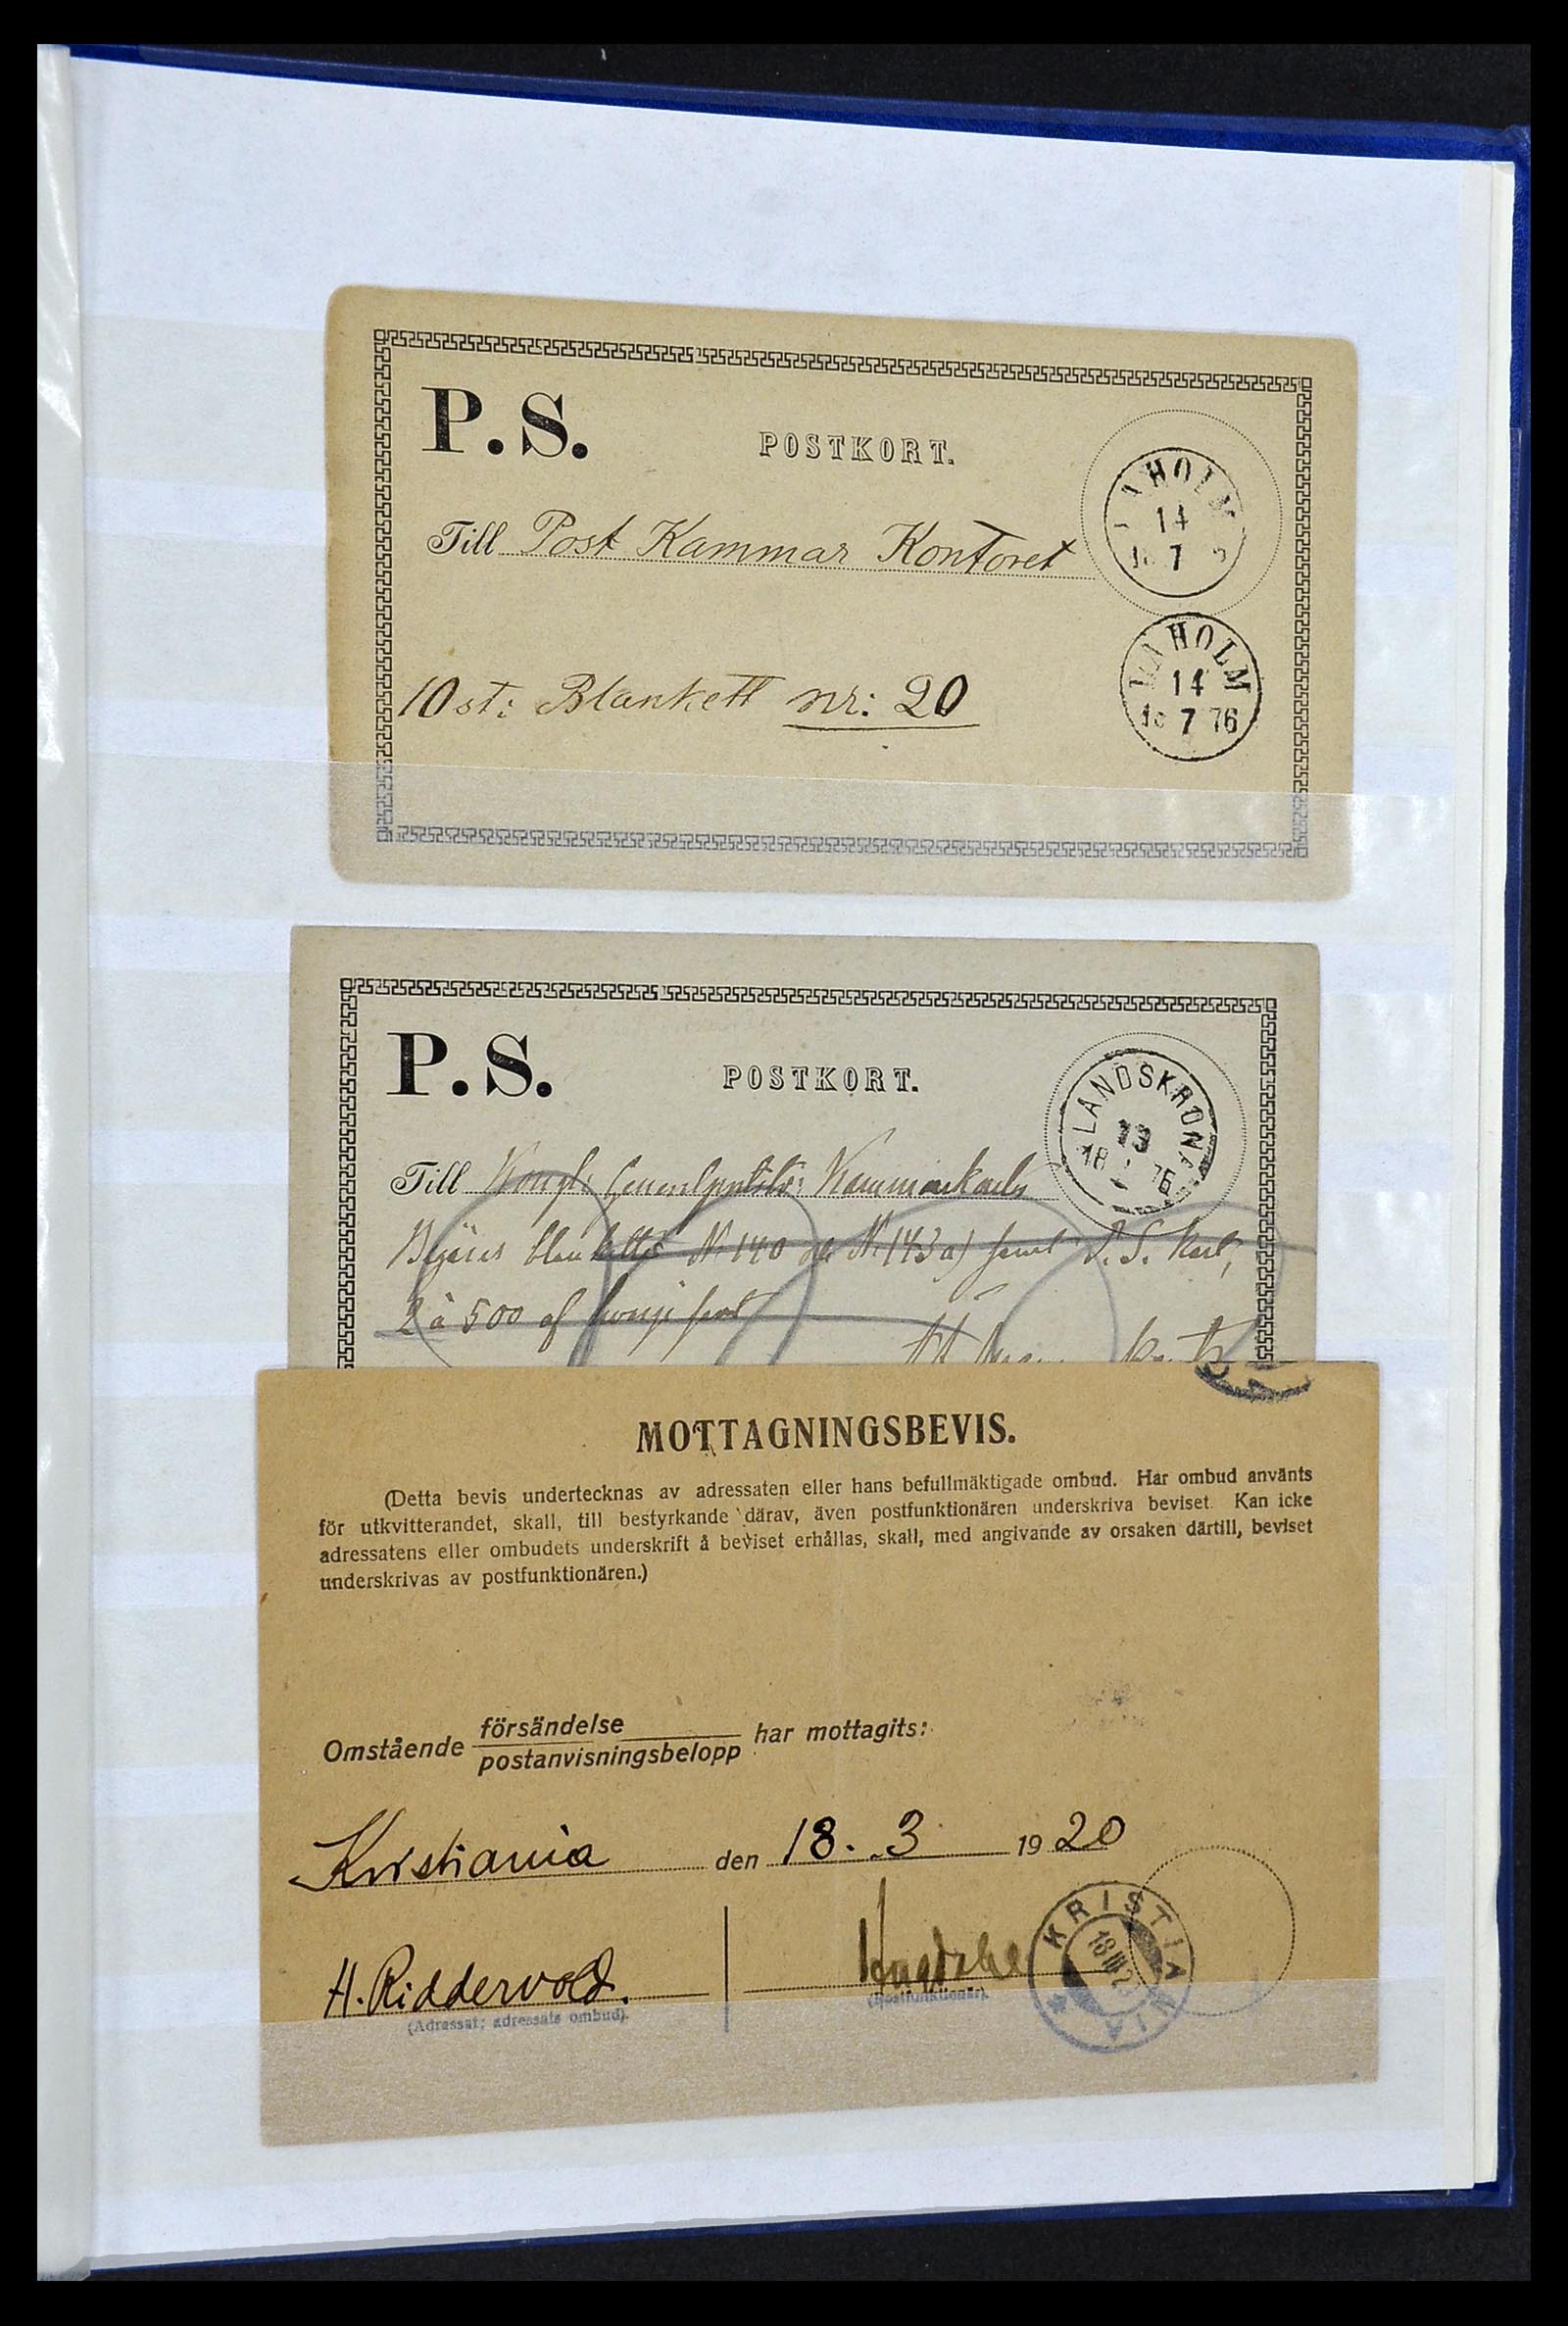 P.S. POSTKORT.
Till Post Kammar Kontoret
LAHOLM
14
7
10 st: Blankett nr: 20
LAHOLM
14
7 76
P.S. POSTKORT.
LANDSKRONA
13
18 76
Till Kongl:
N: 140 N: 143 a) P. S. Kort,
2 à 500 af
MOTTAGNINGSBEVIS.
(Detta bevis undertecknas av adressaten eller hans befullmäktigade ombud. Har ombud använts
för utkvitterandet, skall, till bestyrkande därav, även postfunktionären underskriva beviset. Kan icke
adressatens eller ombudets underskrift å beviset erhållas, skall, med angivande av orsaken därtill, beviset
underskrivas av postfunktionären.)
Omstående försändelse har mottagits:
postanvisningsbelopp
Kristiania den 18. 3 1920
KRISTIANIA
18 III 2
H. Riddervold.
(Adressat; adressats ombud). (Postfunktionär).